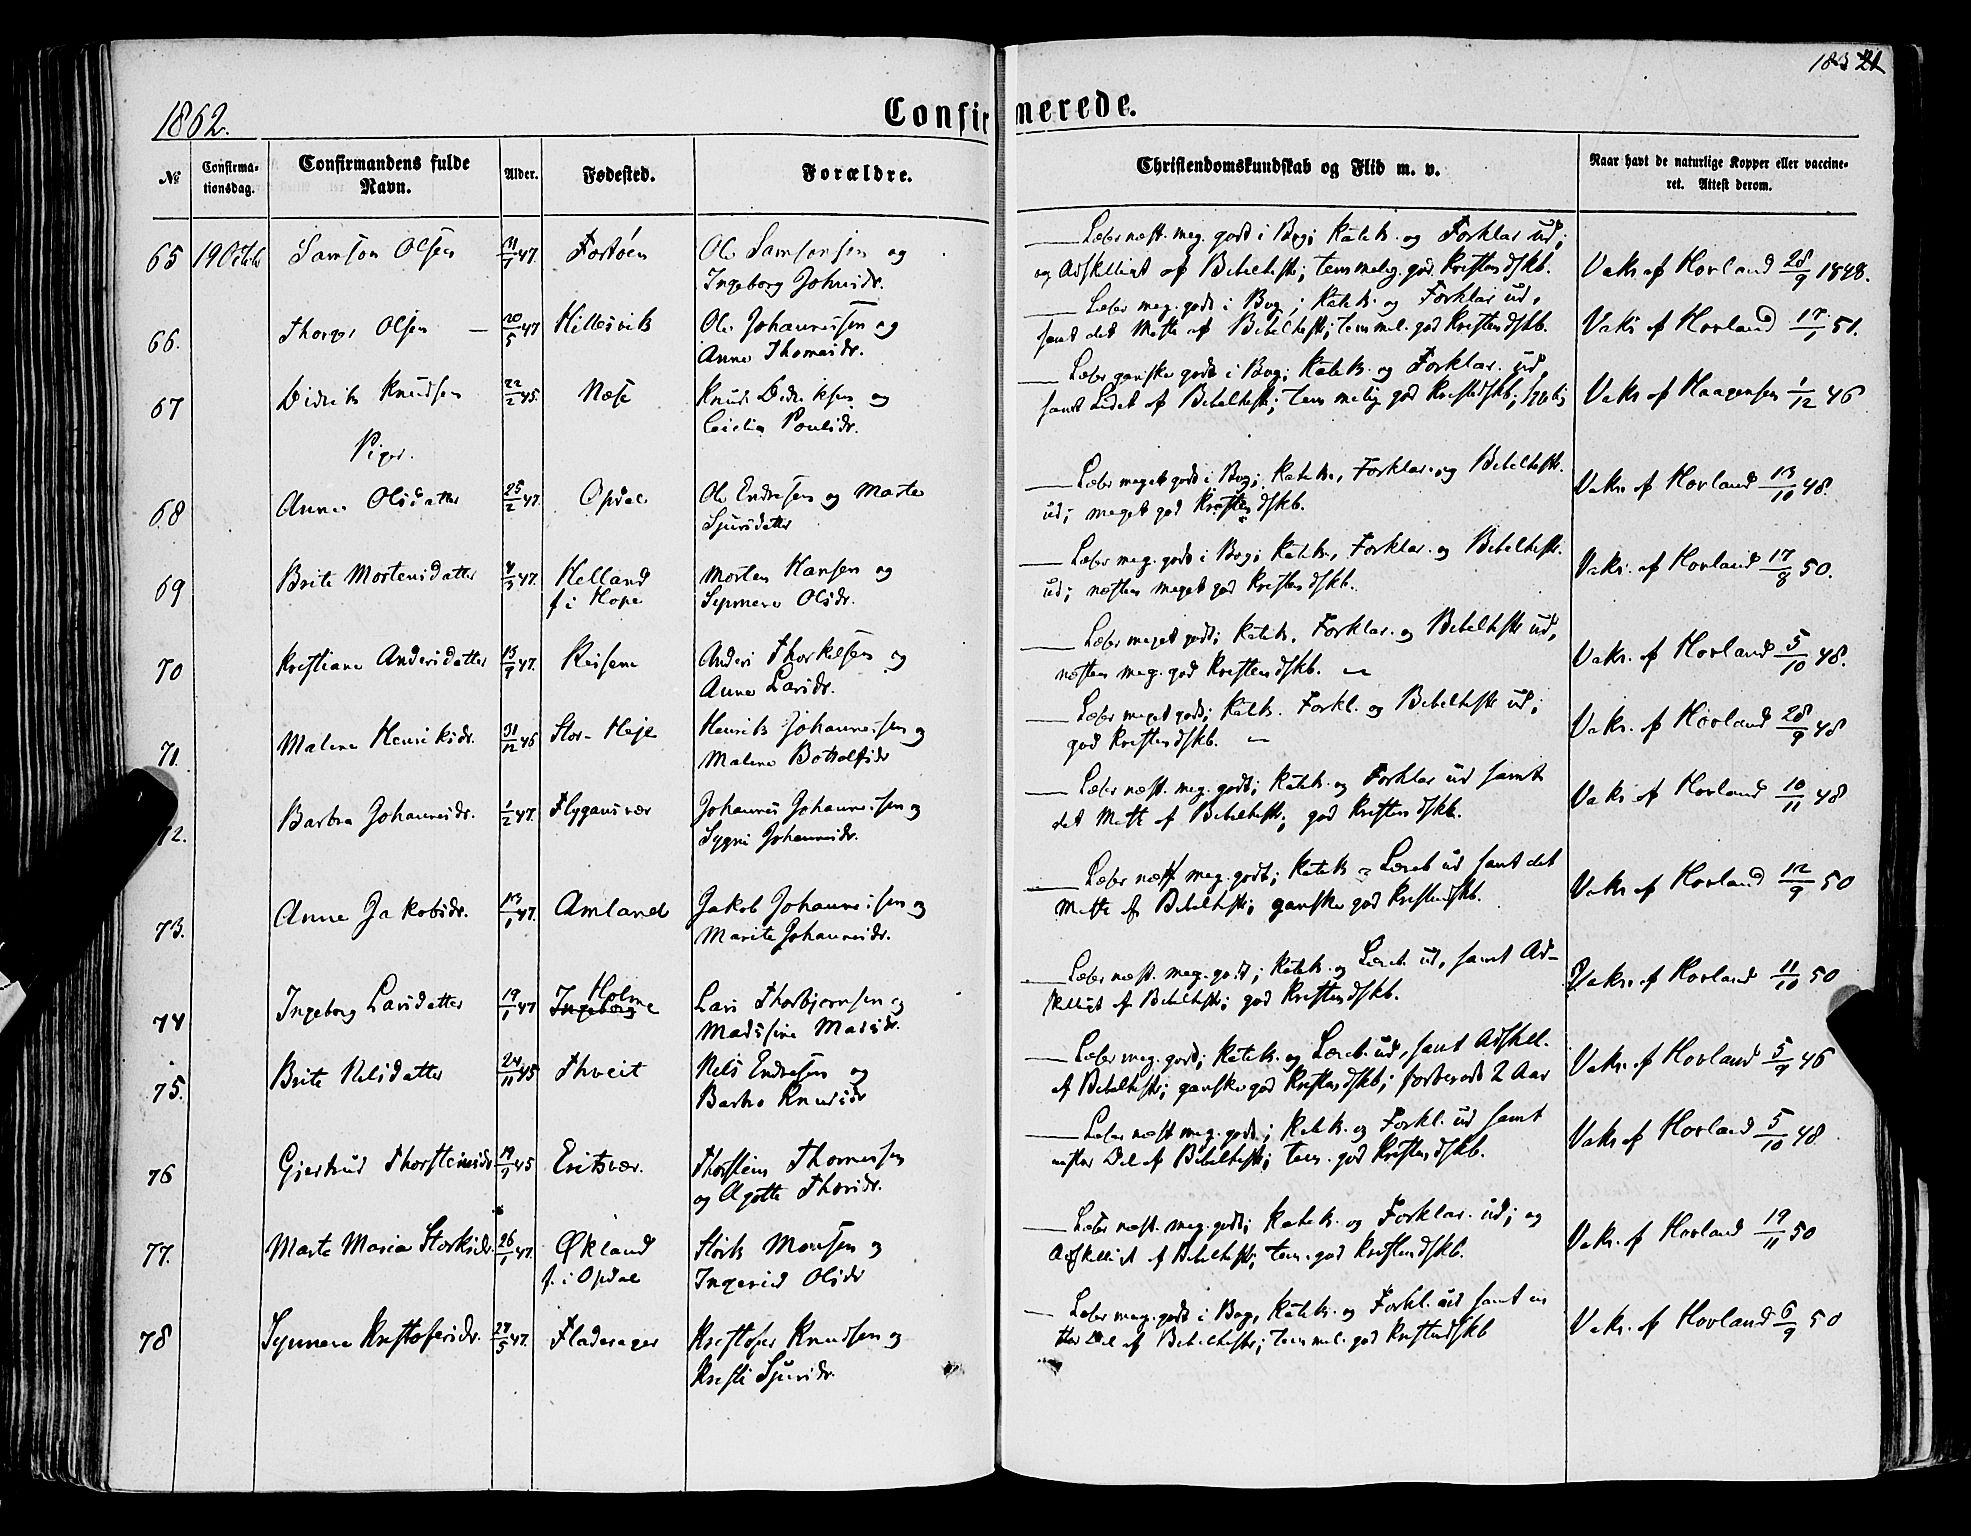 183 21
1862.
Confirmerede.
№ Confirma-tionsdag. Confirmandens fulde Navn. Alder. Fødested. Forældre. Christendomskundskab og Flid m. v. Naar havt de naturlige Kopper eller vaccineret. Attest derom.
65 19 Octbr Samson Olsen 47. Ole Samsonsen og
Ingeborg Johnsdr.
Læser næst. meg. godt i Bog; Katek. og Forklar ud;
og Adskelligt af Bibelhist; temmelig god Kristendskb.
Vaks af Hovland 28/9 1848.
66. Olsen 20/5 47 Hillesvik Ole Johannessen og
Anna Thomasdr.
Læser meg. godt i Bog; Katek. og Forklar ud,
samt det Meste af Bibelhist; temmel. god Kristendskb.
Vaks af Hovland 17/1 51.
67 Didrik Knudsen 22/2 45. Næse Knud Didriksen og
Cecilia Poulsdr.
Læser ganske godt i Bog; Katek. og Forklar. ud,
samt Lidet af Bibelhist; temmelig god Kristendskb;
Vaks af Haagensen 1/12 46
Piger.
68 Anna Olsdatter 25/2 47. Opdal Ole Endresen og Marta
Sjursdatter
Læser meget godt i Bog; Katek., Forklar. og Bibelhist.
ud; meget god Kristendskb.
Vaks. af Hovland 13/10 48.
69 Brite Mortensdatter 47. Helland
f. i Hope
Morten Hansen og
Synneve Olsdr.
Læser meg. godt i Bog; Katek., Forklar. og Bibelhist.
ud; næsten meget god Kristendskb.
Vaks. af Hovland 17/8 50.
70 Kristiane Andersdatter 47. Reisene Anders Thorkelsen og
Anna Larsdr.
Læser meget godt; Katek. Forklar. og Bibelhist ud,
næsten meg. god Kristendskb.
Vaks. af Hovland 5/10 48.
71. Malene Henriksdr. 31/12 46 Stor-Høje Henrik Johannessen og
Malene Botholfsdr
Læser meget godt; Katek. Forkl. og Bibelhist ud;
god Kristendskb.
Vaks. af Hovland 28/9 48
72. Barbra Johannesdr. 1/2 47. Flygansvær Johannes Johannessen og
Sygni Johannesdr.
Læser næst. meg. godt; Katek. og Forklar ud samt
det Meste af Bibelhist; god Kristendskb.
Vaks af Hovland 10/11 48
73. Anna Jakobsdr. 13/1 47. Amland Jakob Johannessen og
Marite Johannesdr.
Læser næst meg. godt; Katek og Læreb. ud samt det
Meste af Bibelhist; ganske god Kristendskb.
Vaks af Hovland 12/9 50
74 Ingeborg Larsdatter 19/1 47 Holme Lars Thorbjørnsen og
Madssine Madsdr.
Læser næst. meg. godt; Katek. og Læreb. ud, samt Ad-
skelligt af Bibelhist; god Kristendskb.
Vaks. af Hovland 11/10 50
75. Brite Nelsdatter 24/11 45 Thveit Nels Endresen og
Barbro Knudsdr
Læser meg. godt; Katek. og Læreb. ud, samt Adskell.
af Bibelhist; ganske god Kristendskb; forberedt 2 Aar
Vaks. af Hovland 46
76 Gjertrud Thorsteinsdr 45 Eritsvær. Thorstein Thomassen
og Agatte Thorsdr.
Læser næst meg. godt; Katek. og Forkl. ud samt
en stor Del af Bibelhist; tem. god Kristendskb.
Vaks af Hovland 5/10 48
77. Marta Maria Storksdr. 26/1 47. Økland
f. i Opdal
Størk Monsen og
Ingerid Olsdr
Læser næst. meg. godt; Katek. og Forklar. ud; og
Adskelligt af Bibelhist; tem. god Kristendskb.
Vaks. af Hovland 19/11 50
78 Synneve Kristofersdr. 24/5 47. Fladerager Kristofer Knudsen og
Kristi Sjursdr.
Læser meg. godt i Bog, Katek. og Forkl. ud samt en
stor Del af Bibelhist; temmel. god Kristendskb
Vaks. af Hovland 6/9 50